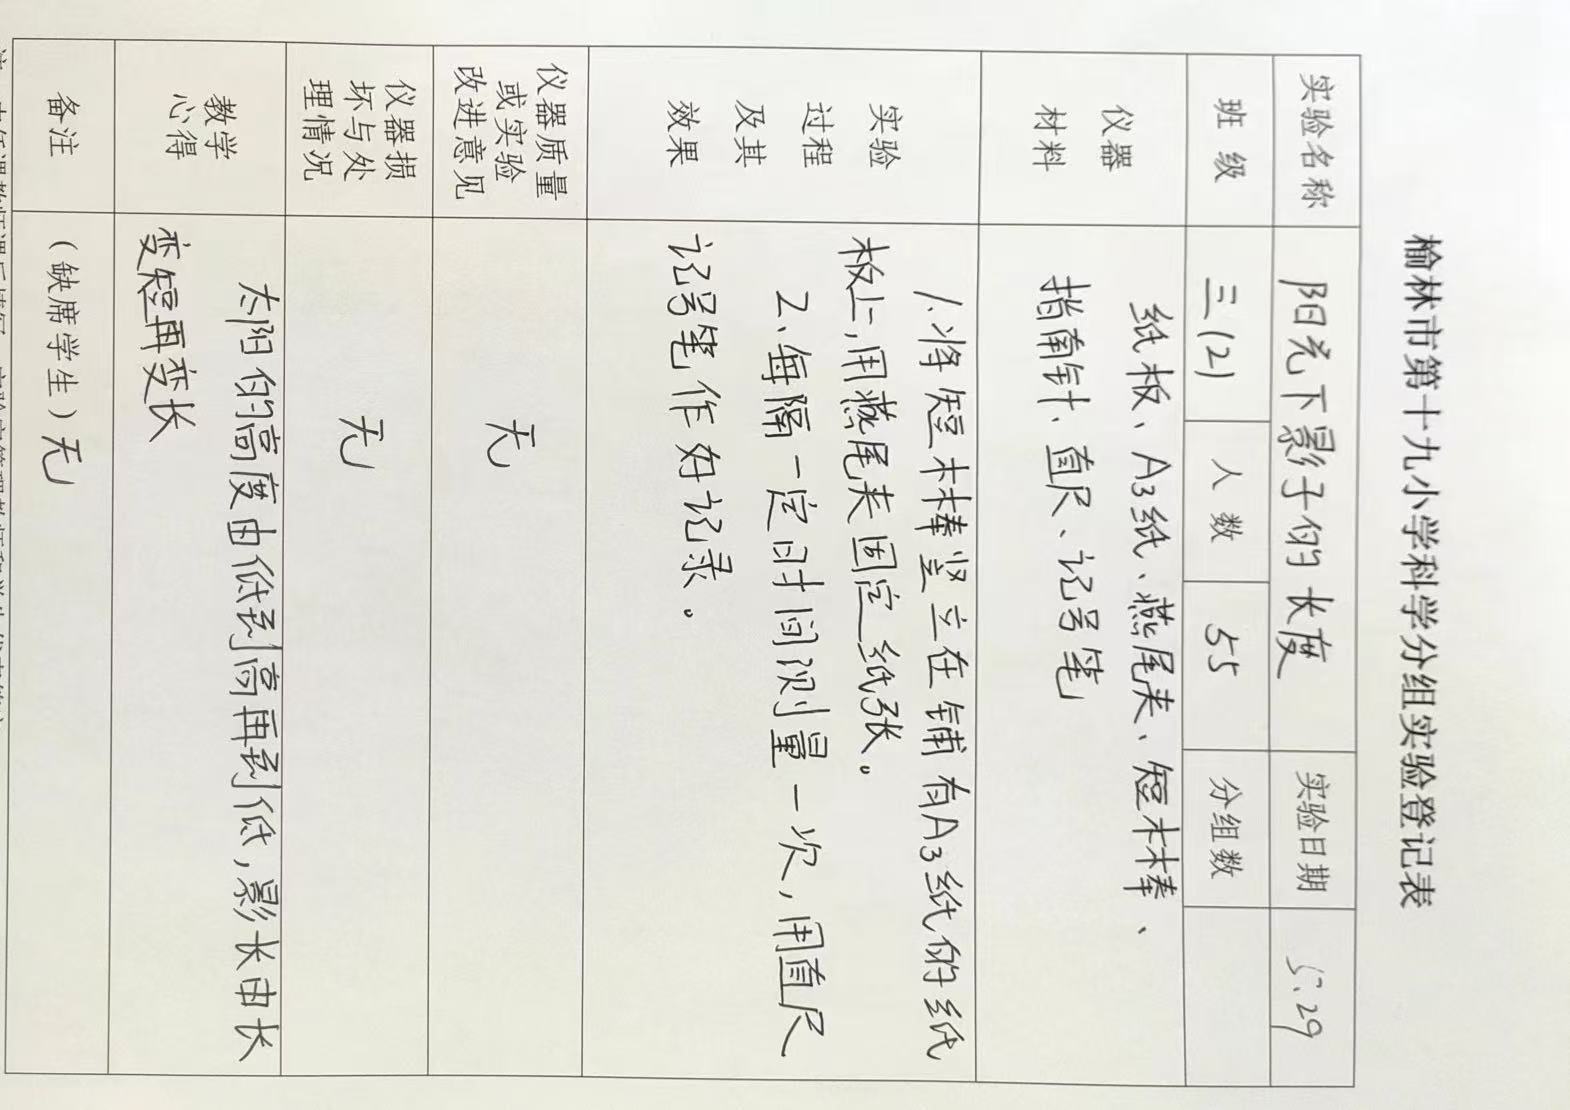 榆林市第十九小学科学分组实验登记表
实验名称 阳光下影子的长度 实验日期 5.29
班 级 三(2) 人 数 55 分组数
仪器
材料
纸板、A3纸、燕尾夹、短木棒、
指南针、直尺、记号笔
实验
过程
及其
效果
1.将短木棒竖立在铺有A3纸的纸
板上,用燕尾夹固定纸张。
2、每隔一定时间测量一次,用直尺
记号笔作好记录。
仪器质量
或实验
改进意见
无
仪器损
坏与处
理情况
无
教学
心得
太阳的高度由低到高再到低,影长由长
变短再变长
备注 (缺席学生)无